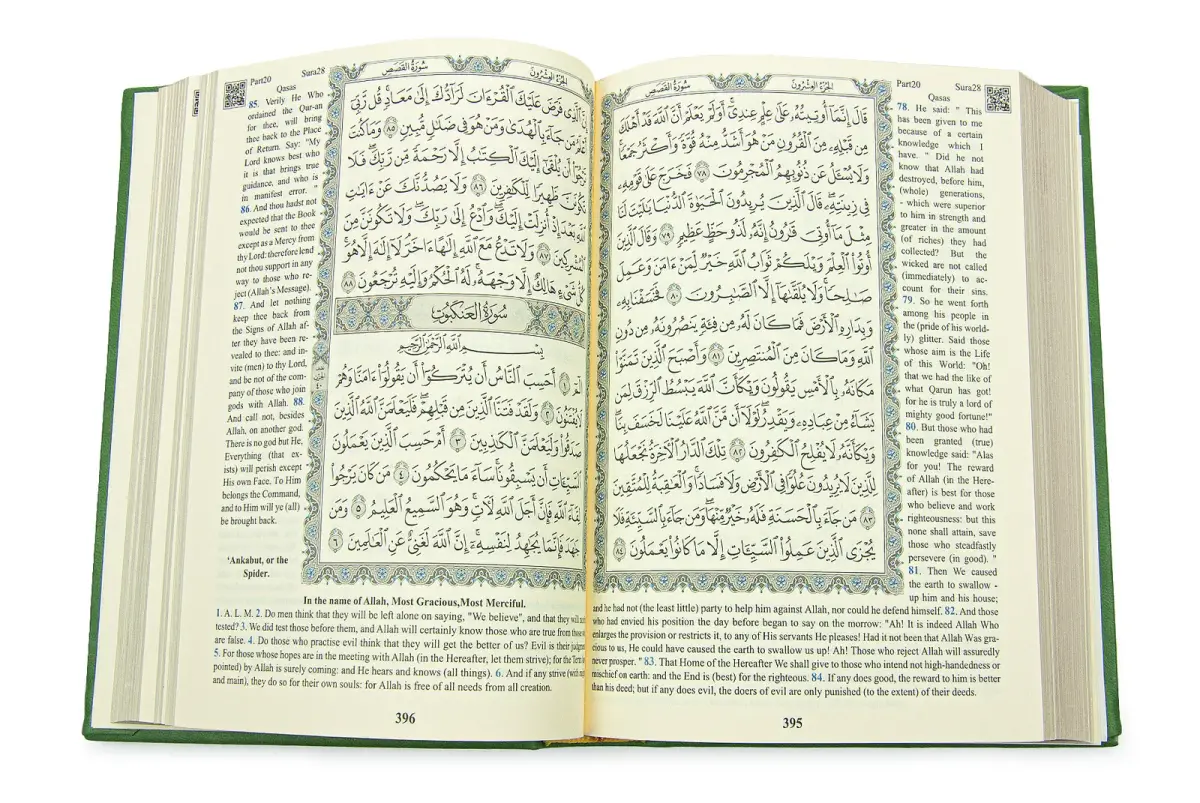 سُورَةُ القَصَصِ
الجُزْءُ العِشْرُونَ
قَالَ إِنَّمَا أُوتِيتُهُۥ عَلَىٰ عِلْمٍ عِندِيٓ أَوَلَمْ يَعْلَمْ أَنَّ ٱللَّهَ قَدْ أَهْلَكَ
مِن قَبْلِهِۦ مِنَ ٱلْقُرُونِ مَنْ هُوَ أَشَدُّ مِنْهُ قُوَّةً وَأَكْثَرُ جَمْعًا
وَلَا يُسْـَٔلُ عَن ذُنُوبِهِمُ ٱلْمُجْرِمُونَ ٧٨ فَخَرَجَ عَلَىٰ قَوْمِهِۦ
فِي زِينَتِهِۦ قَالَ ٱلَّذِينَ يُرِيدُونَ ٱلْحَيَوٰةَ ٱلدُّنْيَا يَٰلَيْتَ لَنَا
مِثْلَ مَآ أُوتِيَ قَٰرُونُ إِنَّهُۥ لَذُو حَظٍّ عَظِيمٍ ٧٩ وَقَالَ ٱلَّذِينَ
أُوتُوا۟ ٱلْعِلْمَ وَيْلَكُمْ ثَوَابُ ٱللَّهِ خَيْرٌ لِّمَنْ ءَامَنَ وَعَمِلَ
صَٰلِحًا وَلَا يُلَقَّىٰهَآ إِلَّا ٱلصَّٰبِرُونَ ٨٠ فَخَسَفْنَا بِهِۦ
وَبِدَارِهِ ٱلْأَرْضَ فَمَا كَانَ لَهُۥ مِن فِئَةٍ يَنصُرُونَهُۥ مِن دُونِ
ٱللَّهِ وَمَا كَانَ مِنَ ٱلْمُنتَصِرِينَ ٨١ وَأَصْبَحَ ٱلَّذِينَ تَمَنَّوْا۟
مَكَانَهُۥ بِٱلْأَمْسِ يَقُولُونَ وَيْكَأَنَّ ٱللَّهَ يَبْسُطُ ٱلرِّزْقَ لِمَن
يَشَآءُ مِنْ عِبَادِهِۦ وَيَقْدِرُ لَوْلَآ أَن مَّنَّ ٱللَّهُ عَلَيْنَا لَخَسَفَ بِنَا
وَيْكَأَنَّهُۥ لَا يُفْلِحُ ٱلْكَٰفِرُونَ ٨٢ تِلْكَ ٱلدَّارُ ٱلْأَخِرَةُ نَجْعَلُهَا
لِلَّذِينَ لَا يُرِيدُونَ عُلُوًّا فِي ٱلْأَرْضِ وَلَا فَسَادًا وَٱلْعَٰقِبَةُ لِلْمُتَّقِينَ
٨٣ مَن جَآءَ بِٱلْحَسَنَةِ فَلَهُۥ خَيْرٌ مِّنْهَا وَمَن جَآءَ بِٱلسَّيِّئَةِ فَلَا
يُجْزَى ٱلَّذِينَ عَمِلُوا۟ ٱلسَّيِّـَٔاتِ إِلَّا مَا كَانُوا۟ يَعْمَلُونَ ٨٤
Part20 Sura28
Qasas
78. He said: " This
has been given to me
because of a certain
knowledge which I
have. " Did he not
know that Allah had
destroyed, before him,
(whole) generations,
- which were superior
to him in strength and
greater in the amount
(of riches) they had
collected? But the
wicked are not called
(immediately) to ac-
count for their sins.
79. So he went forth
among his people in
the (pride of his world-
ly) glitter. Said those
whose aim is the Life
of this World: "Oh!
that we had the like of
what Qarun has got!
for he is truly a lord of
mighty good fortune!"
80. But those who had
been granted (true)
knowledge said: "Alas
for you! The reward
of Allah (in the Here-
after) is best for those
who believe and work
righteousness: but this
none shall attain, save
those who steadfastly
persevere (in good). "
81. Then We caused
the earth to swallow -
up him and his house;
and he had not (the least little) party to help him against Allah, nor could he defend himself. 82. And those
who had envied his position the day before began to say on the morrow: "Ah! It is indeed Allah Who
enlarges the provision or restricts it, to any of His servants He pleases! Had it not been that Allah Was gra-
cious to us, He could have caused the earth to swallow us up! Ah! Those who reject Allah will assuredly
never prosper. " 83. That Home of the Hereafter We shall give to those who intend not high-handedness or
mischief on earth: and the End is (best) for the righteous. 84. If any does good, the reward to him is better
than his deed; but if any does evil, the doers of evil are only punished (to the extent) of their deeds.
395
سُورَةُ القَصَصِ
الجُزْءُ العِشْرُونَ
ٱلَّذِي فَرَضَ عَلَيْكَ ٱلْقُرْءَانَ لَرَآدُّكَ إِلَىٰ مَعَادٍ قُل رَّبِّيٓ
مَن جَآءَ بِٱلْهُدَىٰ وَمَنْ هُوَ فِي ضَلَٰلٍ مُّبِينٍ ٨٥ وَمَا كُنتَ
أَن يُلْقَىٰٓ إِلَيْكَ ٱلْكِتَٰبُ إِلَّا رَحْمَةً مِّن رَّبِّكَ فَلَا
تَكُونَنَّ ظَهِيرًا لِّلْكَٰفِرِينَ ٨٦ وَلَا يَصُدُّنَّكَ عَنْ ءَايَٰتِ
ٱللَّهِ بَعْدَ إِذْ أُنزِلَتْ إِلَيْكَ وَٱدْعُ إِلَىٰ رَبِّكَ وَلَا تَكُونَنَّ مِنَ
ٱلْمُشْرِكِينَ ٨٧ وَلَا تَدْعُ مَعَ ٱللَّهِ إِلَٰهًا ءَاخَرَ لَآ إِلَٰهَ إِلَّا هُوَ
كُلُّ شَيْءٍ هَالِكٌ إِلَّا وَجْهَهُۥ لَهُ ٱلْحُكْمُ وَإِلَيْهِ تُرْجَعُونَ ٨٨
سُورَةُ العَنكَبُوتِ
بِسْمِ ٱللَّهِ ٱلرَّحْمَٰنِ ٱلرَّحِيمِ
الٓمٓ ١ أَحَسِبَ ٱلنَّاسُ أَن يُتْرَكُوٓا۟ أَن يَقُولُوٓا۟ ءَامَنَّا وَهُمْ
لَا يُفْتَنُونَ ٢ وَلَقَدْ فَتَنَّا ٱلَّذِينَ مِن قَبْلِهِمْ فَلَيَعْلَمَنَّ ٱللَّهُ ٱلَّذِينَ
صَدَقُوا۟ وَلَيَعْلَمَنَّ ٱلْكَٰذِبِينَ ٣ أَمْ حَسِبَ ٱلَّذِينَ يَعْمَلُونَ
ٱلسَّيِّـَٔاتِ أَن يَسْبِقُونَا سَآءَ مَا يَحْكُمُونَ ٤ مَن كَانَ يَرْجُوا۟
لِقَآءَ ٱللَّهِ فَإِنَّ أَجَلَ ٱللَّهِ لَأٓتٍ وَهُوَ ٱلسَّمِيعُ ٱلْعَلِيمُ ٥ وَمَن
جَٰهَدَ فَإِنَّمَا يُجَٰهِدُ لِنَفْسِهِۦٓ إِنَّ ٱللَّهَ لَغَنِيٌّ عَنِ ٱلْعَٰلَمِينَ ٦
Part20 Sura28
Qasas
85. Verily He Who
ordained the Qur-an
for thee, will bring
thee back to the Place
of Return. Say: "My
Lord knows best who
it is that brings true
guidance, and who is
in manifest error. "
86. And thou hadst not
expected that the Book
would be sent to thee
except as a Mercy from
thy Lord: therefore lend
not thou support in any
way to those who re-
ject (Allah's Message).
87. And let nothing
keep thee back from
the Signs of Allah af-
ter they have been re-
vealed to thee: and in-
vite (men) to thy Lord,
and be not of the com-
pany of those who join
gods with Allah. 88.
And call not, besides
Allah, on another god.
There is no god but He,
Everything (that ex-
ists) will perish except
His own Face. To Him
belongs the Command,
and to Him will ye (all)
be brought back.
'Ankabut, or the
Spider.
In the name of Allah, Most Gracious,Most Merciful.
1. A. L. M. 2. Do men think that they will be left alone on saying, "We believe", and that they will not
tested? 3. We did test those before them, and Allah will certainly know those who are true from those
are false. 4. Do those who practise evil think that they will get the better of us? Evil is their
5. For those whose hopes are in the meeting with Allah (in the Hereafter, let them strive); for the Term
pointed) by Allah is surely coming: and He hears and knows (all things). 6. And if any strive (with
and main), they do so for their own souls: for Allah is free of all needs from all creation.
396